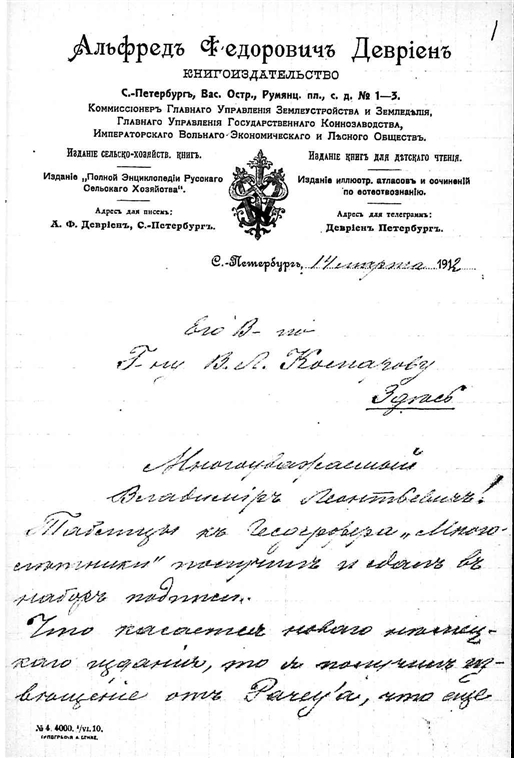 1
Альфредъ Ѳедоровичъ Девріенъ
КНИГОИЗДАТЕЛЬСТВО
С.-Петербургъ, Вас. Остр., Румянц. пл., с. д. № 1—3.
Коммиссіонеръ Главнаго Управленія Землеустройства и Земледѣлія,
Главнаго Управленія Государственнаго Коннозаводства,
Императорскаго Вольнаго Экономическаго и Лѣсного Обществъ.
Изданіе сельско-хозяйств. книгъ.
Изданіе „Полной Энциклопедіи Русскаго
Сельскаго Хозяйства“.
Адресъ для писемъ:
А. Ф. Девріенъ, С.-Петербургъ.
Изданіе книгъ для дѣтскаго чтенія.
Изданіе иллюстр. атласовъ и сочиненій
по естествознанію.
Адресъ для телеграммъ:
Девріенъ Петербургъ.
С.-Петербургъ, 14 марта 1912
Его В-
Г-ну В. Л.
Здѣсь
Многоуважаемый
Владиміръ Леонтьевичъ!
Таблицы къ „Много-
и сдалъ въ
наборъ подписи.
Что касается новаго нѣмец-
каго изданія, то я получилъ из-
вѣщеніе отъ, что еще
№ 4. 4000. ¹/VI.10.